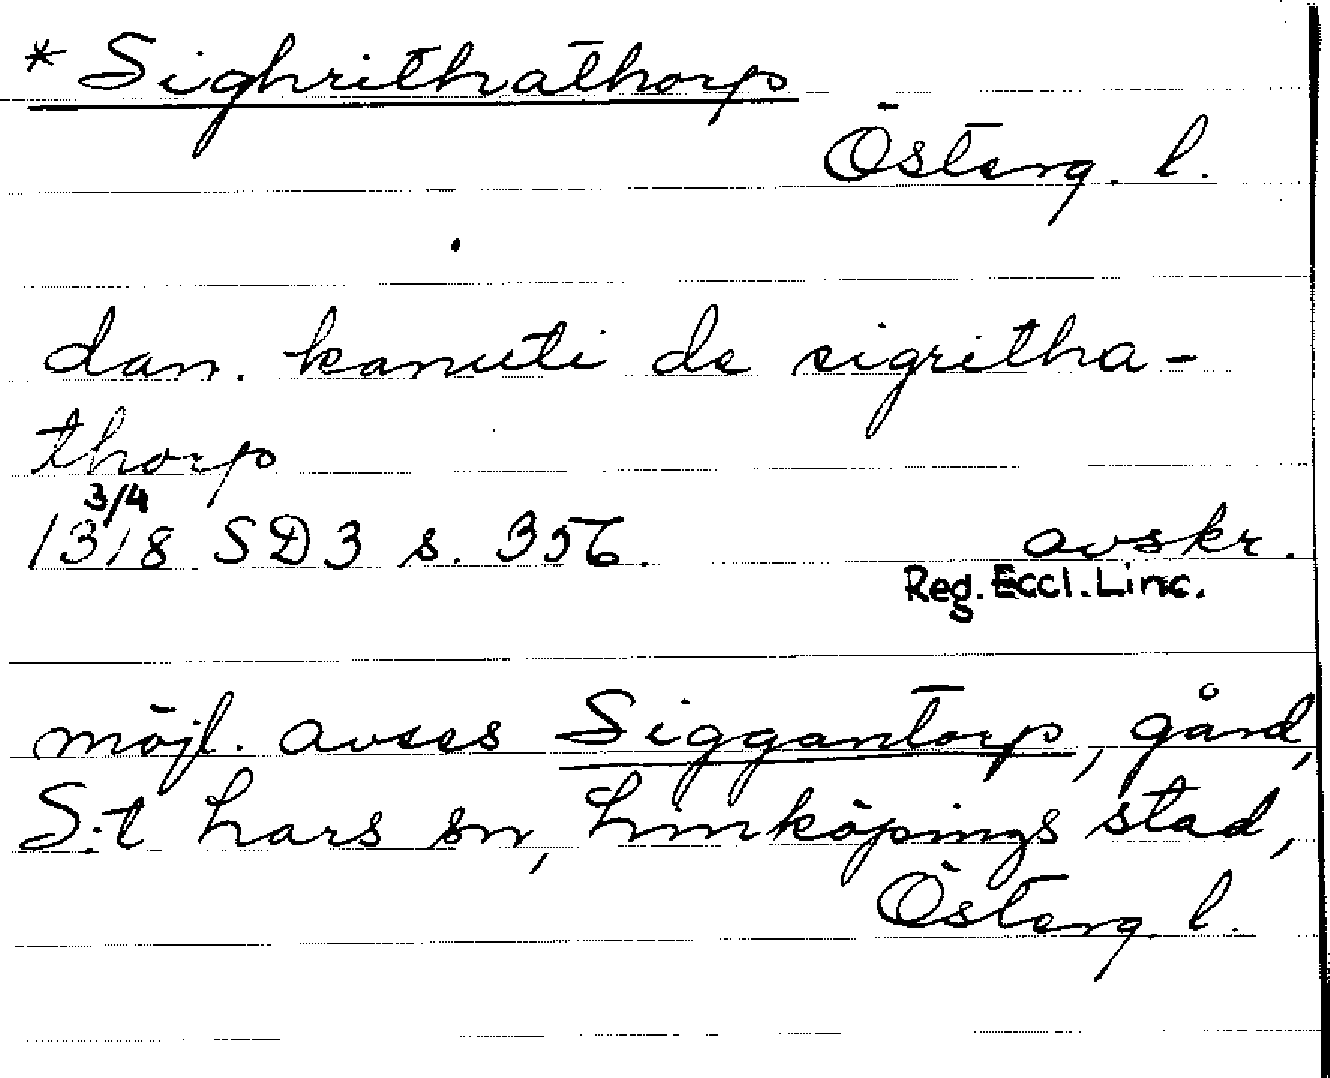 * Sighrithathorp
Österg. l.
dan. kanuti de sigritha-
thorp
3/4
1318 SD3 s. 356. avskr.
Reg. Eccl. Linc.
möjl. avses Siggantorp, gård,
S:t Lars sn, Linköpings stad,
Österg. l.